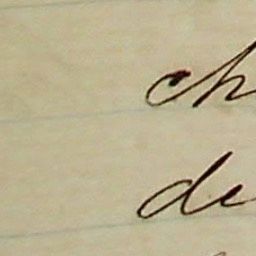 ch
de